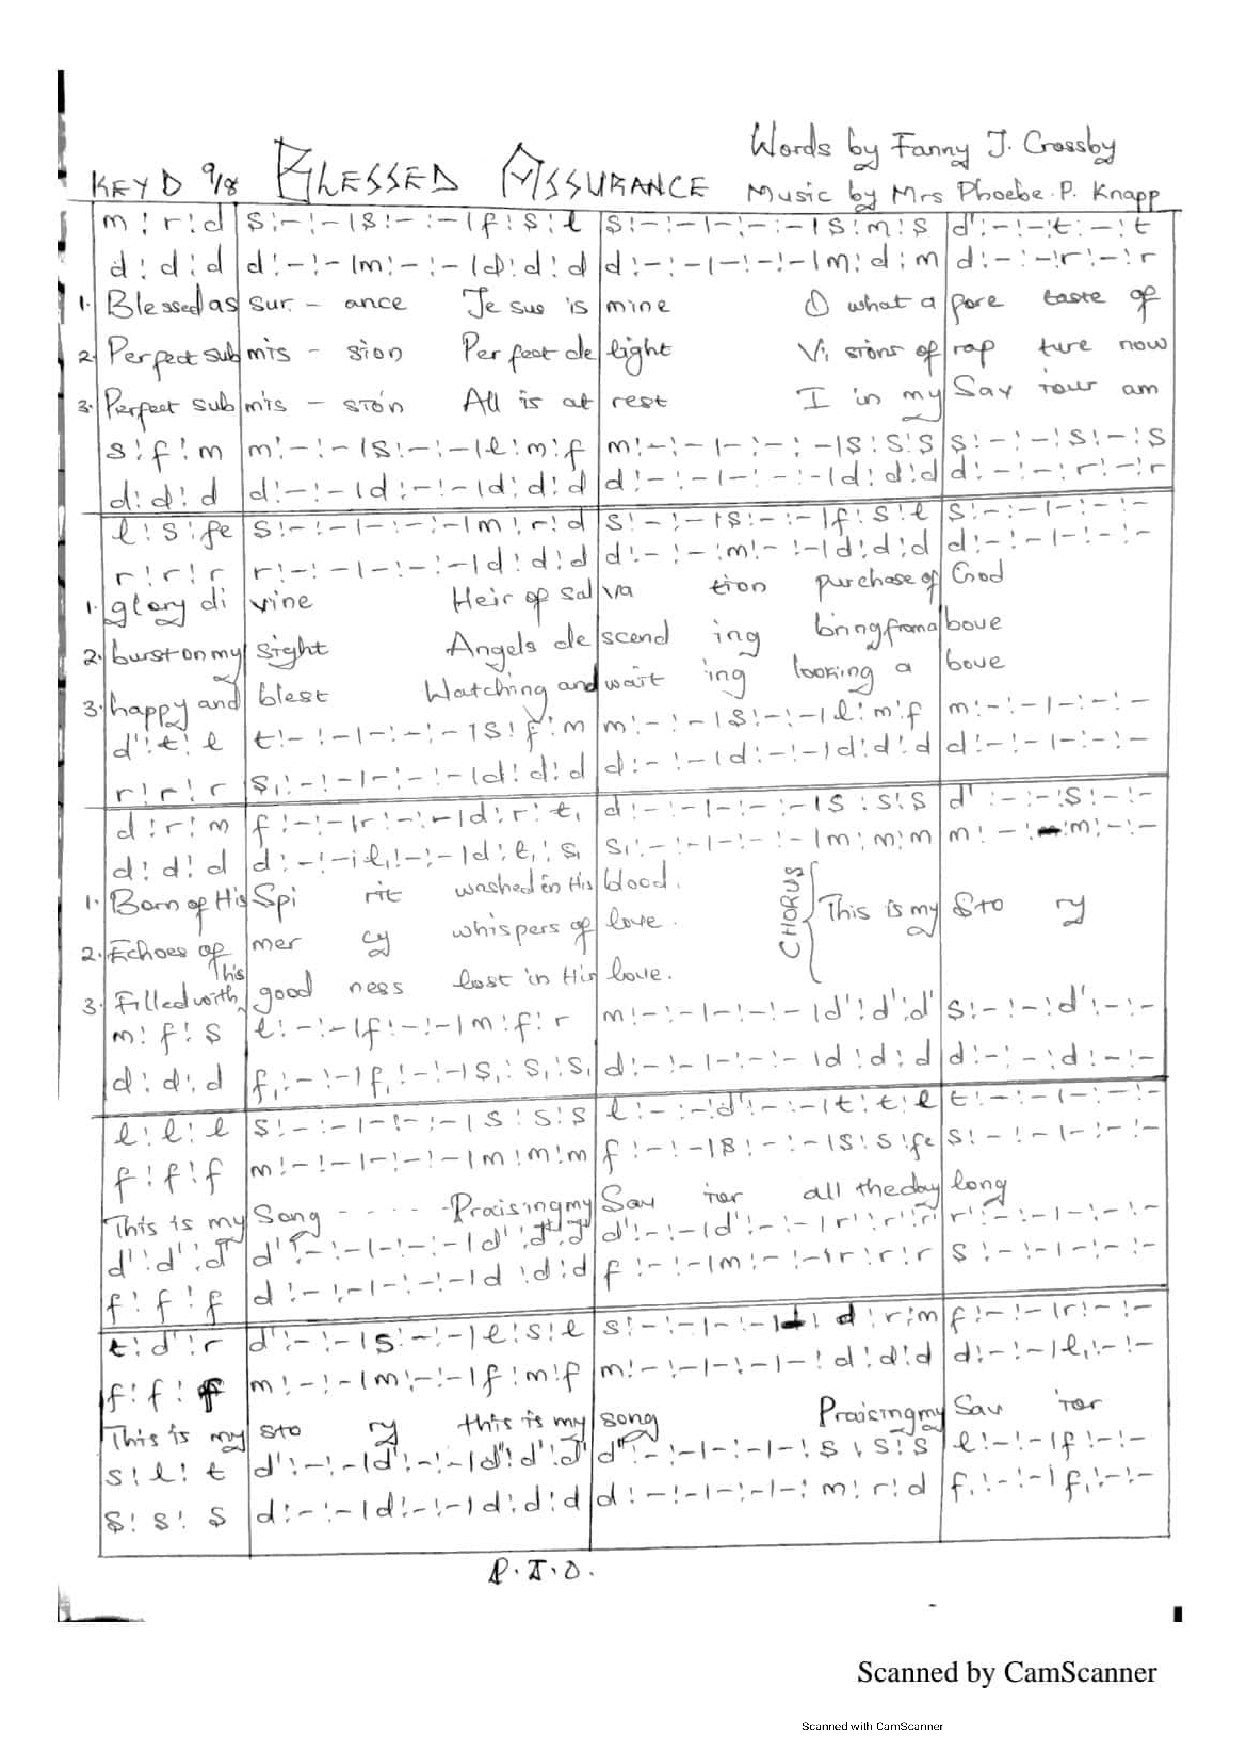 Words by Fanny J. Crossby
KEY D 9/8 BLESSED ASSURANCE Music by Mrs Phoebe. P. Knapp
m : r : d | s : - : - | s : - : - | f : s : l | s : - : - | - : - : - | s : m : s | d' : - : - : t : - : t
d : d : d | d : - : - | m : - : - | d : d : d | d : - : - | - : - : - | m : d : m | d : - : - : r : - : r
1. Blessed as sur - ance Je sus is mine O what a pore taste of
2. Perfect sub mis - sion Perfect de light Vi sions of rap ture now
3. Perfect sub mis - sion All is at rest I in my Sav iour am
s : f : m | m : - : - | s : - : - | l : m : f | m : - : - | - : - : - | s : s : s | s : - : - : s : - : s
d : d : d | d : - : - | d : - : - | d : d : d | d : - : - | - : - : - | d : d : d | d : - : - : r : - : r
l : s : fe | s : - : - | - : - : - | m : r : d | s : - : - | s : - : - | f : s : l | s : - : - | - : - : -
r : r : r | r : - : - | - : - : - | d : d : d | d : - : - : m : - : - | d : d : d | d : - : - | - : - : -
1. glory di vine Heir of sal va tion purchase of God
2. burst on my sight Angels de scend ing bring from a bove
3. happy and blest Watching and wait ing looking a bove
d' : t : l | t : - : - | - : - : - | s : f : m | m : - : - | s : - : - | l : m : f | m : - : - | - : - : -
r : r : r | s, : - : - | - : - : - | d : d : d | d : - : - | d : - : - | d : d : d | d : - : - | - : - : -
d : r : m | f : - : - | r : - : r | d : r : t, | d : - : - | - : - : - | s : s : s | d' : - : - : s : - : -
d : d : d | d : - : - : l, : - : - | d : t, : s, | s, : - : - | - : - : - | m : m : m | m : - : - m : - : -
1. Born of His Spi rit washed in His blood. CHORUS { This is my Sto ry
2. Echoes of mer cy whispers of love.
3. Filled with His good ness lost in His love.
m : f : s | l : - : - | f : - : - | m : f : r | m : - : - | - : - : - | d' : d' : d' | s : - : - : d' : - : -
d : d : d | f, : - : - | f, : - : - | s, : s, : s, | d : - : - | - : - : - | d : d : d | d : - : - : d : - : -
l : l : l | s : - : - | - : - : - | s : s : s | l : - : - : d' : - : - | t : t : l | t : - : - | - : - : -
f : f : f | m : - : - | - : - : - | m : m : m | f : - : - | s : - : - | s : s : fe | s : - : - | - : - : -
This is my Song - - - - Praising my Sav ior all the day long
d' : d' : d' | d' : - : - | - : - : - | d' : d' : d' | d' : - : - | d' : - : - | r' : r' : r' | r' : - : - | - : - : -
f : f : f | d : - : - | - : - : - | d : d : d | f : - : - | m : - : - | r : r : r | s : - : - | - : - : -
t : d' : r | d' : - : - | s : - : - | l : s : l | s : - : - | - : - | : d : r : m | f : - : - | r : - : -
f : f : f | m : - : - | m : - : - | f : m : f | m : - : - | - : - | - : d : d : d | d : - : - | l, : - : -
This is my sto ry this is my song Praising my Sav ior
s : l : t | d' : - : - | d' : - : - | d' : d' : d' | d' : - : - | - : - | - : s : s : s | l : - : - | f : - : -
s : s : s | d : - : - | d : - : - | d : d : d | d : - : - | - : - | - : m : r : d | f, : - : - | f, : - : -
P.T.O.
Scanned by CamScanner
Scanned with CamScanner